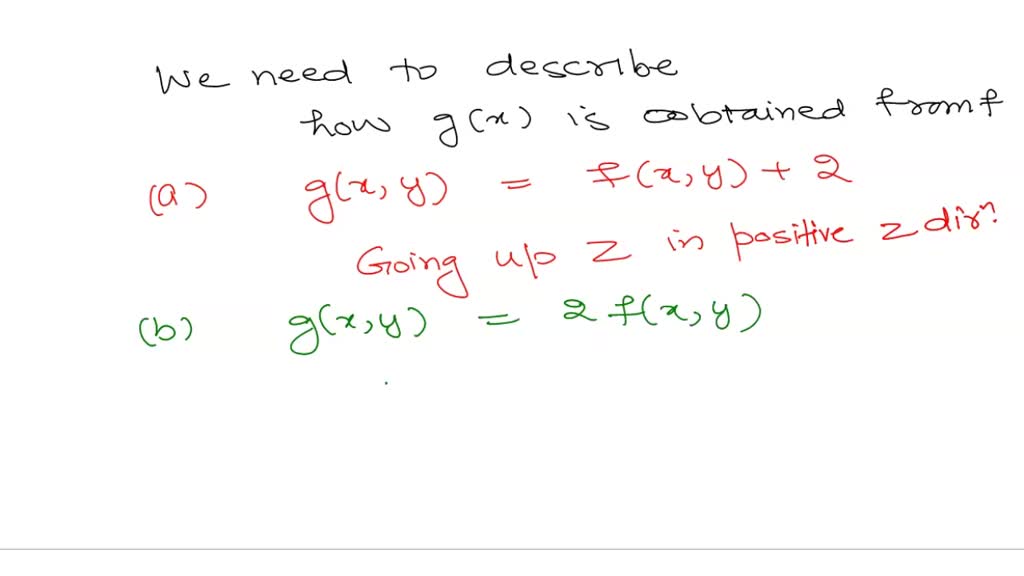 We need to describe
how g(x) is obtained from f
(a) g(x, y) = f(x, y) + 2
Going up 2 in positive z dirⁿ.
(b) g(x, y) = 2 f(x, y)